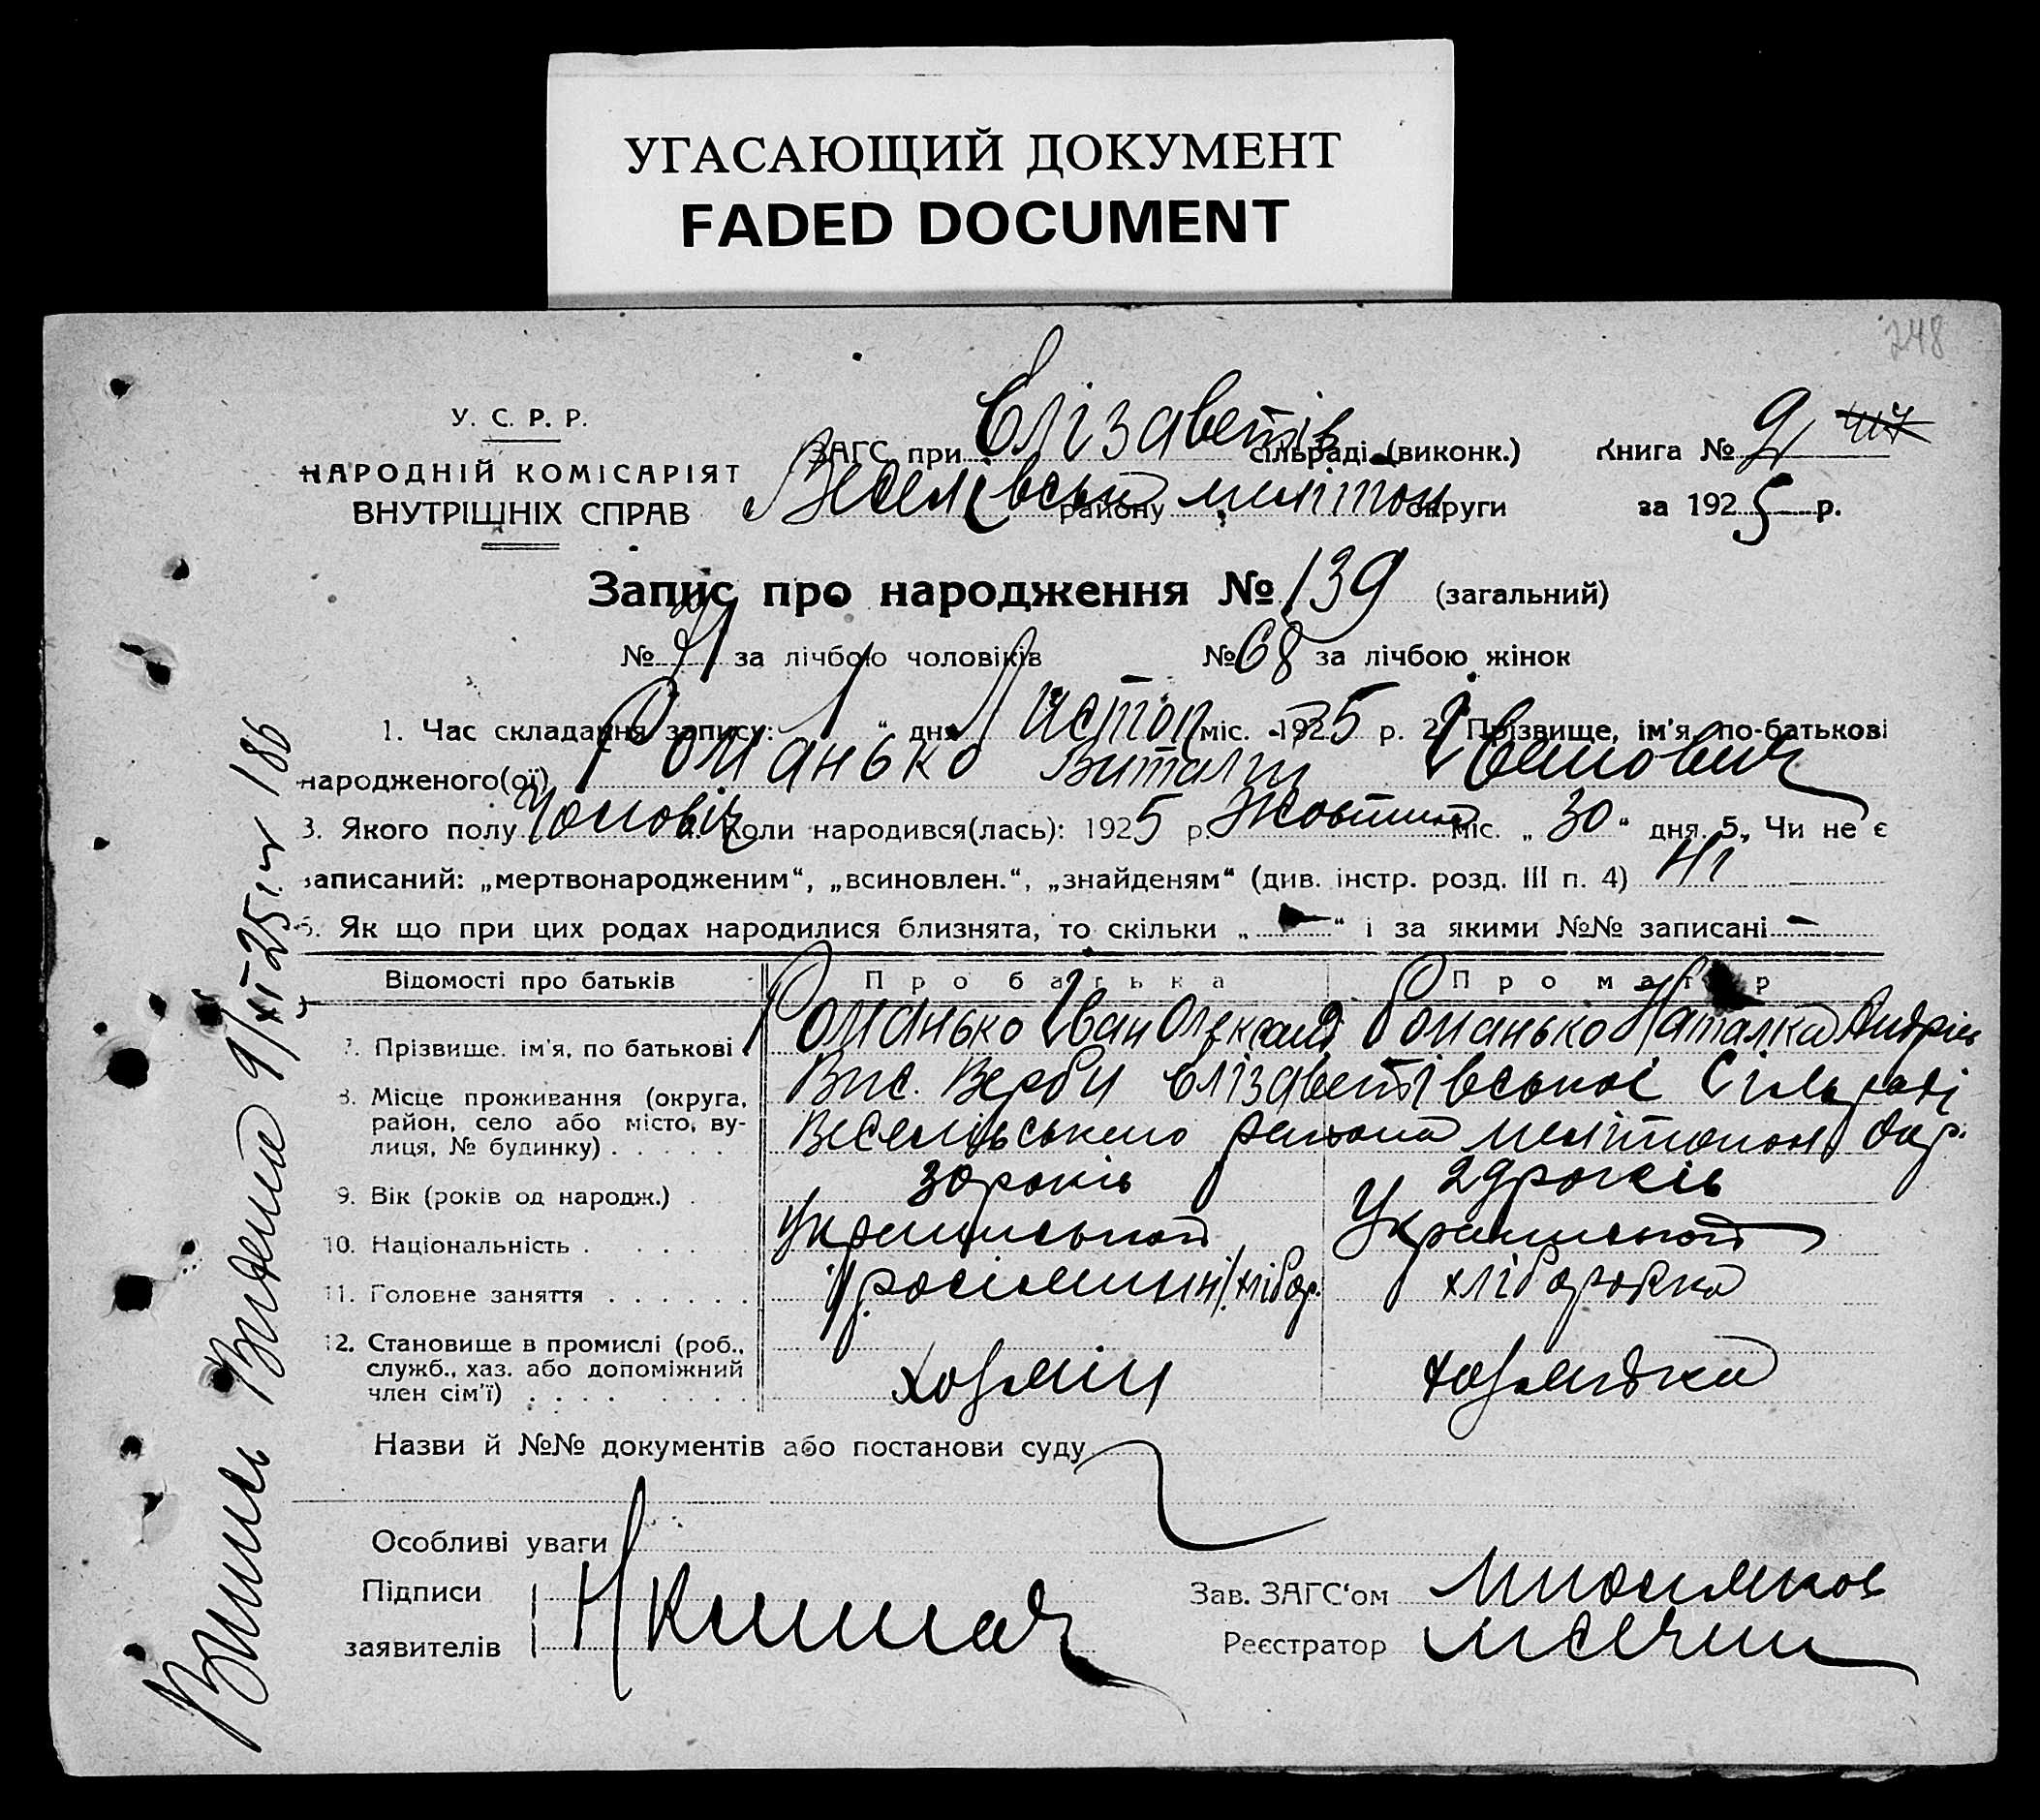 УГАСАЮЩИЙ ДОКУМЕНТ
FADED DOCUMENT
248
У. С. Р. Р.
НАРОДНІЙ КОМІСАРІЯТ
ВНУТРІШНІХ СПРАВ
ЗАГС при Єлізаветів сільраді (виконк.)
Веселівськ району мелітоп округи
Книга № 2
за 1925 р.
Запис про народження № 139 (загальний)
№ 71 за лічбою чоловіків № 68 за лічбою жінок
1. Час складання запису: 1 “ дня Листоп міс. 1925 р. 2. Прізвище, ім'я, по-батькові
народженого(ої) Романько Виталій Іванович
3. Якого полу Чоловіч 4. Коли народився(лась): 1925 р. Жовтня міс. „ 30 “ дня. 5. Чи не є
записаний: „мертвонародженим“, „всиновлен.“, „знайденям“ (див. інстр. розд. III п. 4) Ні
6. Як що при цих родах народилися близнята, то скільки „ — “ і за якими №№ записані —
Відомості про батьків Про батька Про матір
7. Прізвище, ім'я, по батькові Романько Іван Олександ Романько Наталка Андрієв
8. Місце проживання (округа, Вис. Верби Єлізаветівської Сільраді
район, село або місто, ву- Веселівського района мелітопол Окр.
лиця, № будинку)
9. Вік (років од народж.) 30 років 29 років
10. Національність Украинської Украинської
11. Головне заняття хлібор. хліборобка
12. Становище в промислі (роб.,
служб., хаз. або допоміжний хозяїн хозяйка
член сім'ї)
Назви й №№ документів або постанови суду
Особливі уваги
Підписи
заявителів
Зав. ЗАГС'ом
Реєстратор
Випис Видана 9/XI 25 г. 186